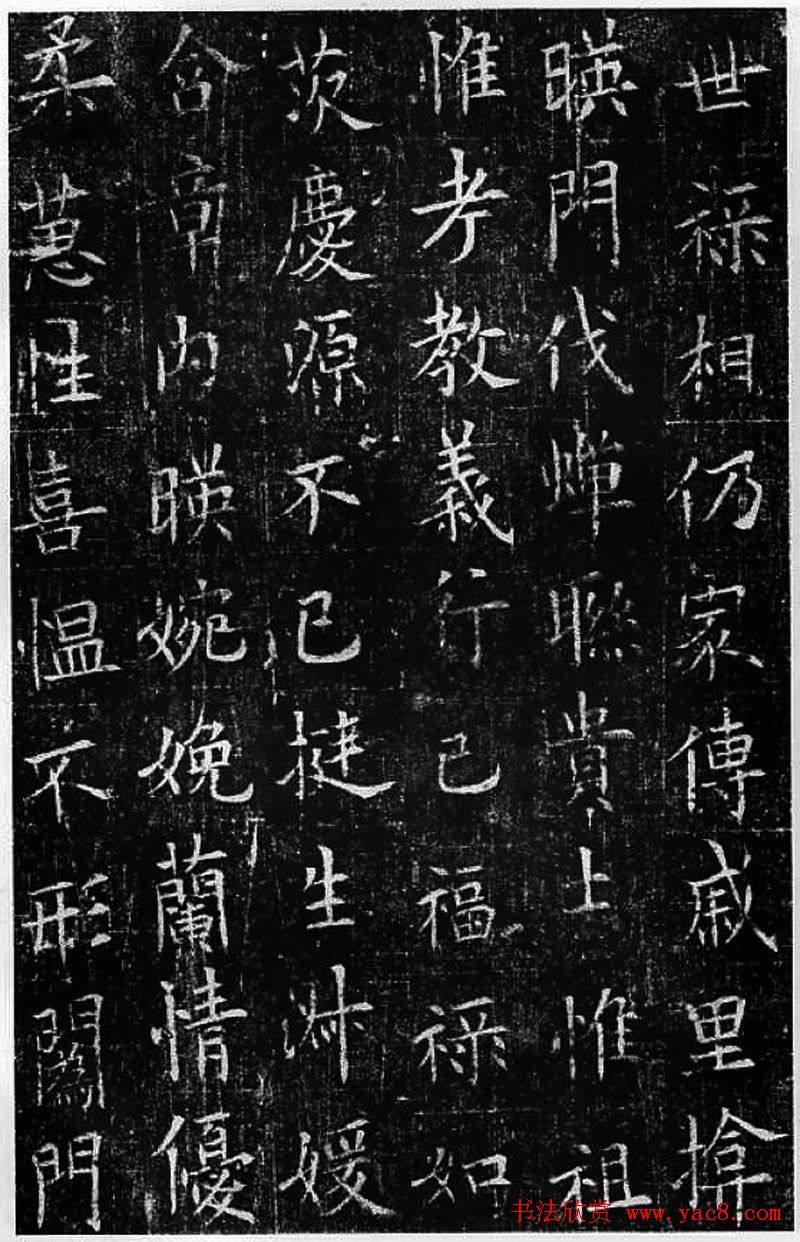 世禄相仍家傳戚里揜
暎門伐蟬聯貴上惟祖
惟考教義行己福禄如
茨慶源不已挺生淋媛
含章内暎婉娩蘭情優
柔蕙性喜愠不形闺門
书法欣赏 www.yac8.com